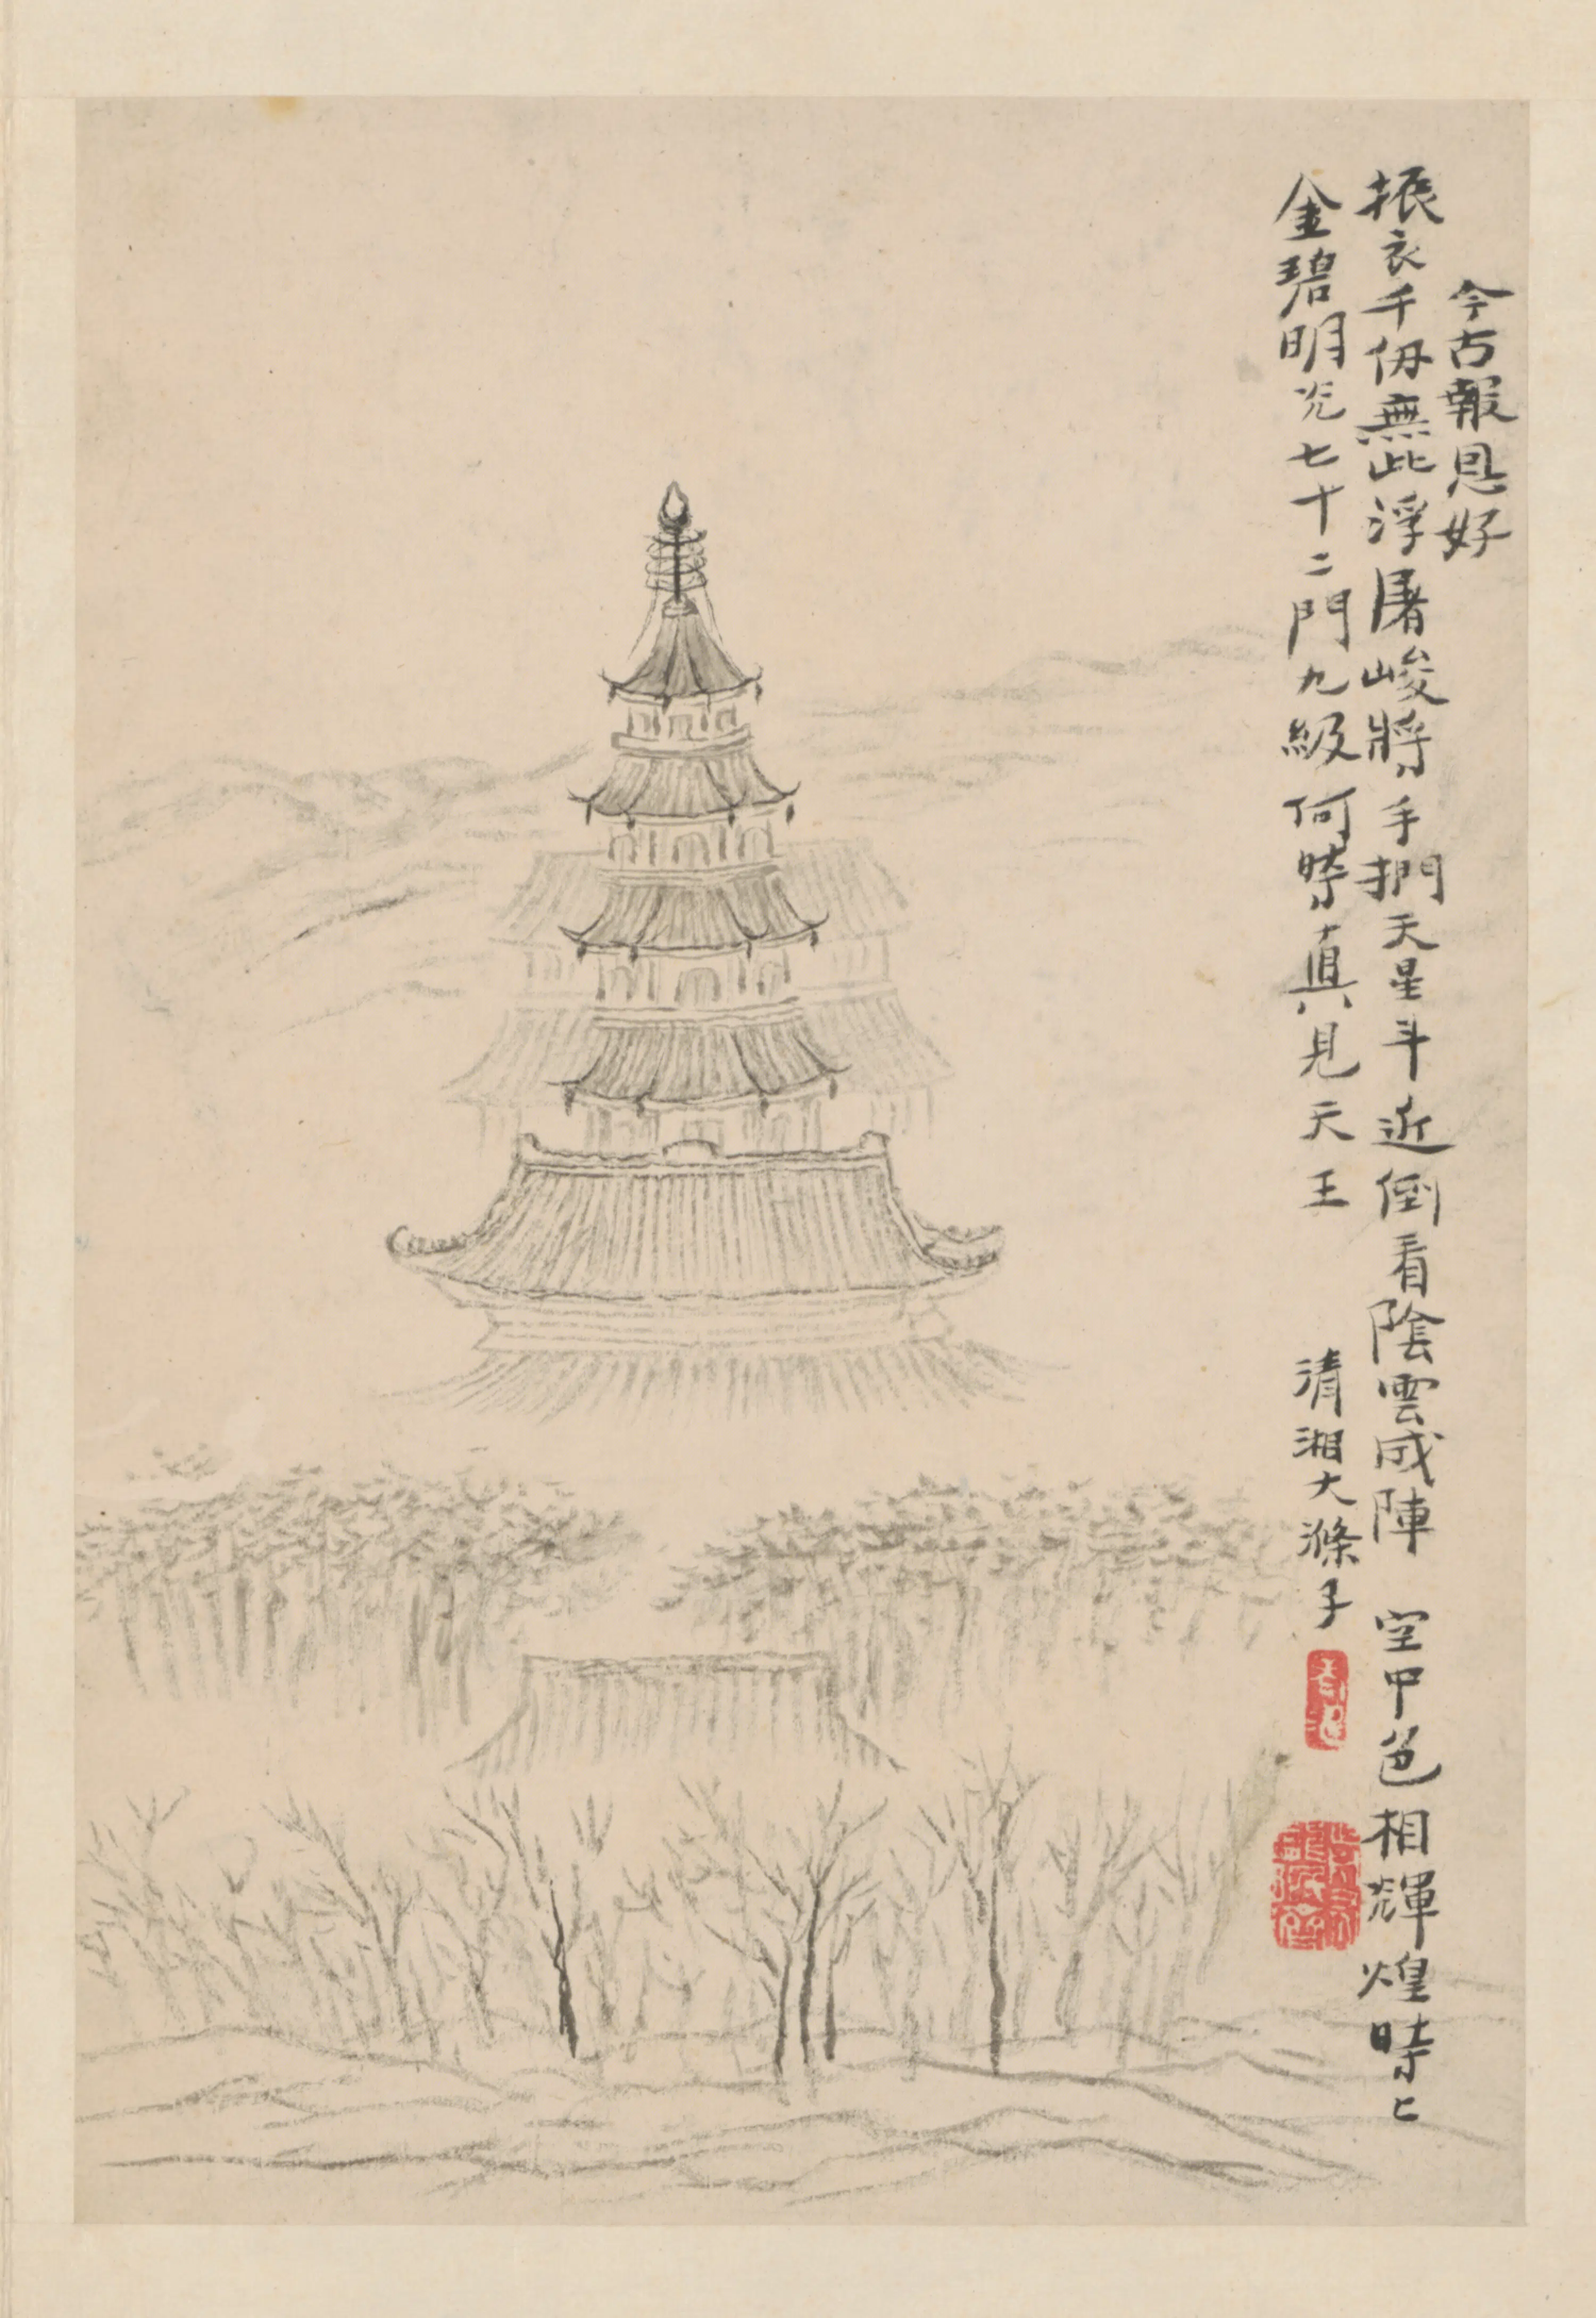 今古報恩好
振衣千仞無此浮屠峻將手捫天星斗近倒看陰雲成陣 空中色相輝煌時〻
金碧明光七十二門九級何時真見天王 清湘大滌子